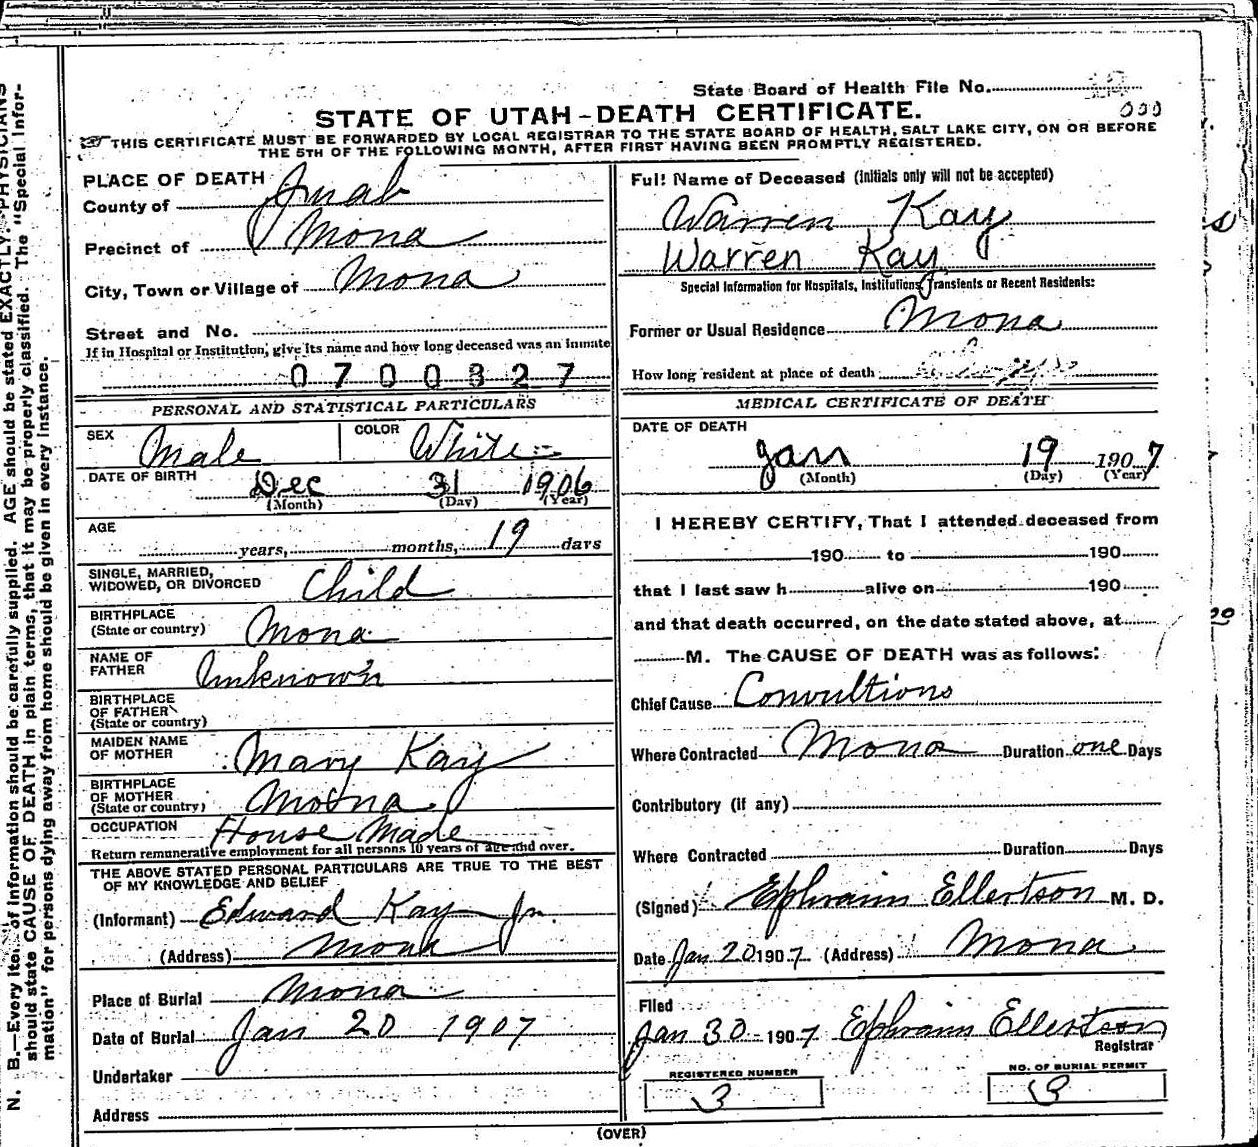 State Board of Health File No.
STATE OF UTAH-DEATH CERTIFICATE.
000
THIS CERTIFICATE MUST BE FORWARDED BY LOCAL REGISTRAR TO THE STATE BOARD OF HEALTH, SALT LAKE CITY, ON OR BEFORE
THE 5TH OF THE FOLLOWING MONTH, AFTER FIRST HAVING BEEN PROMPTLY REGISTERED.
PLACE OF DEATH
County of Juab
Precinct of Mona
City, Town or Village of Mona
Street and No.
If in Hospital or Institution, give its name and how long deceased was an inmate
0700827
PERSONAL AND STATISTICAL PARTICULARS
SEX Male COLOR White
DATE OF BIRTH Dec 31 1906
(Month) (Day) (Year)
AGE years, months, 19 days
SINGLE, MARRIED,
WIDOWED, OR DIVORCED Child
BIRTHPLACE
(State or country) Mona
NAME OF
FATHER Unknown
BIRTHPLACE
OF FATHER
(State or country)
MAIDEN NAME
OF MOTHER Mary Kay
BIRTHPLACE
OF MOTHER
(State or country) Mona
OCCUPATION House Made
Return remunerative employment for all persons 10 years of age and over.
THE ABOVE STATED PERSONAL PARTICULARS ARE TRUE TO THE BEST
OF MY KNOWLEDGE AND BELIEF
(Informant) Edward Kay Jr.
(Address) Mona
Place of Burial Mona
Date of Burial Jan 20 1907
Undertaker
Address
Full Name of Deceased (initials only will not be accepted)
Warren Kay
Warren Kay
Special Information for Hospitals, Institutions, Transients or Recent Residents:
Former or Usual Residence Mona
How long resident at place of death
MEDICAL CERTIFICATE OF DEATH
DATE OF DEATH
Jan 19 1907
(Month) (Day) (Year)
I HEREBY CERTIFY, That I attended deceased from
190 to 190
that I last saw h alive on 190
and that death occurred, on the date stated above, at
M. The CAUSE OF DEATH was as follows:
Chief Cause Convultions
Where Contracted Mona Duration one Days
Contributory (if any)
Where Contracted Duration Days
(Signed) Ephraim Ellertson M. D.
Date Jan 20 1907 (Address) Mona
Filed
Jan 30 1907 Ephraim Ellertson
Registrar
REGISTERED NUMBER NO. OF BURIAL PERMIT
3 3
(OVER)
N. B.—Every item of information should be carefully supplied. AGE should be stated EXACTLY. PHYSICIANS
should state CAUSE OF DEATH in plain terms, that it may be properly classified. The "Special Infor-
mation" for persons dying away from home should be given in every instance.